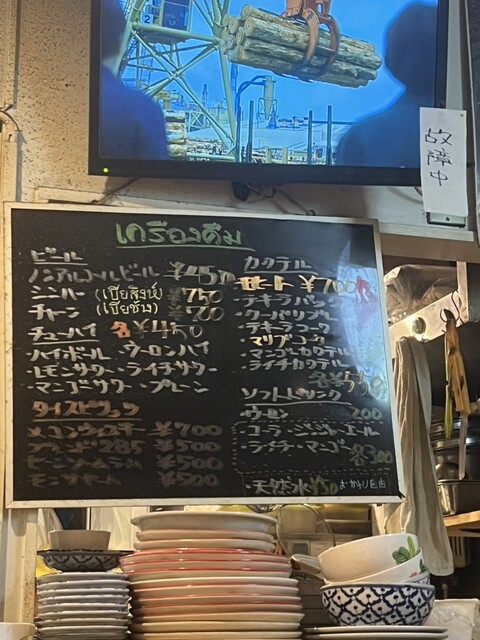 2
故障中
เครื่องดื่ม
ビール
ノンアルコールビール ¥450
シンハー (เบียสิงห์) ¥750
チャーン (เบียช้าง) ¥700
チューハイ 各¥450
ハイボール・ウーロンハイ
レモンサワー・ライチサワー
マンゴサワー・プレーン
メコンウィスキー ¥700
285 ¥500
¥500
¥500
カクテル
モヒート ¥700
テキーラバック
クーバリブレ
テキーラコーク
マリブコーク
マンゴカクテル
ライチカクテル
各¥550
ソフトドリンク
ウーロン 200
・コーラ・ジンジャエール
・ライチ・マンゴ 各300
・天然水 ¥50 おかわり自由